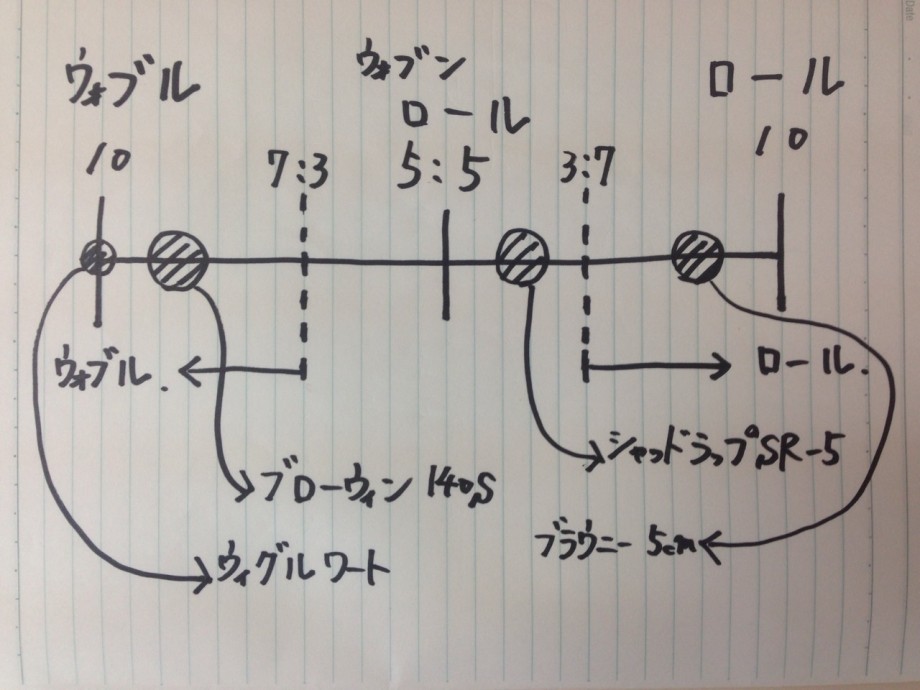 Date
ウォブル
ウォブン
ロール
ロール
10
7:3
5:5
3:7
10
ウォブル.
ロール.
シャッドラップSR-5
ブローウィン 140S
ブラウニー 5cm
ウィグルワート